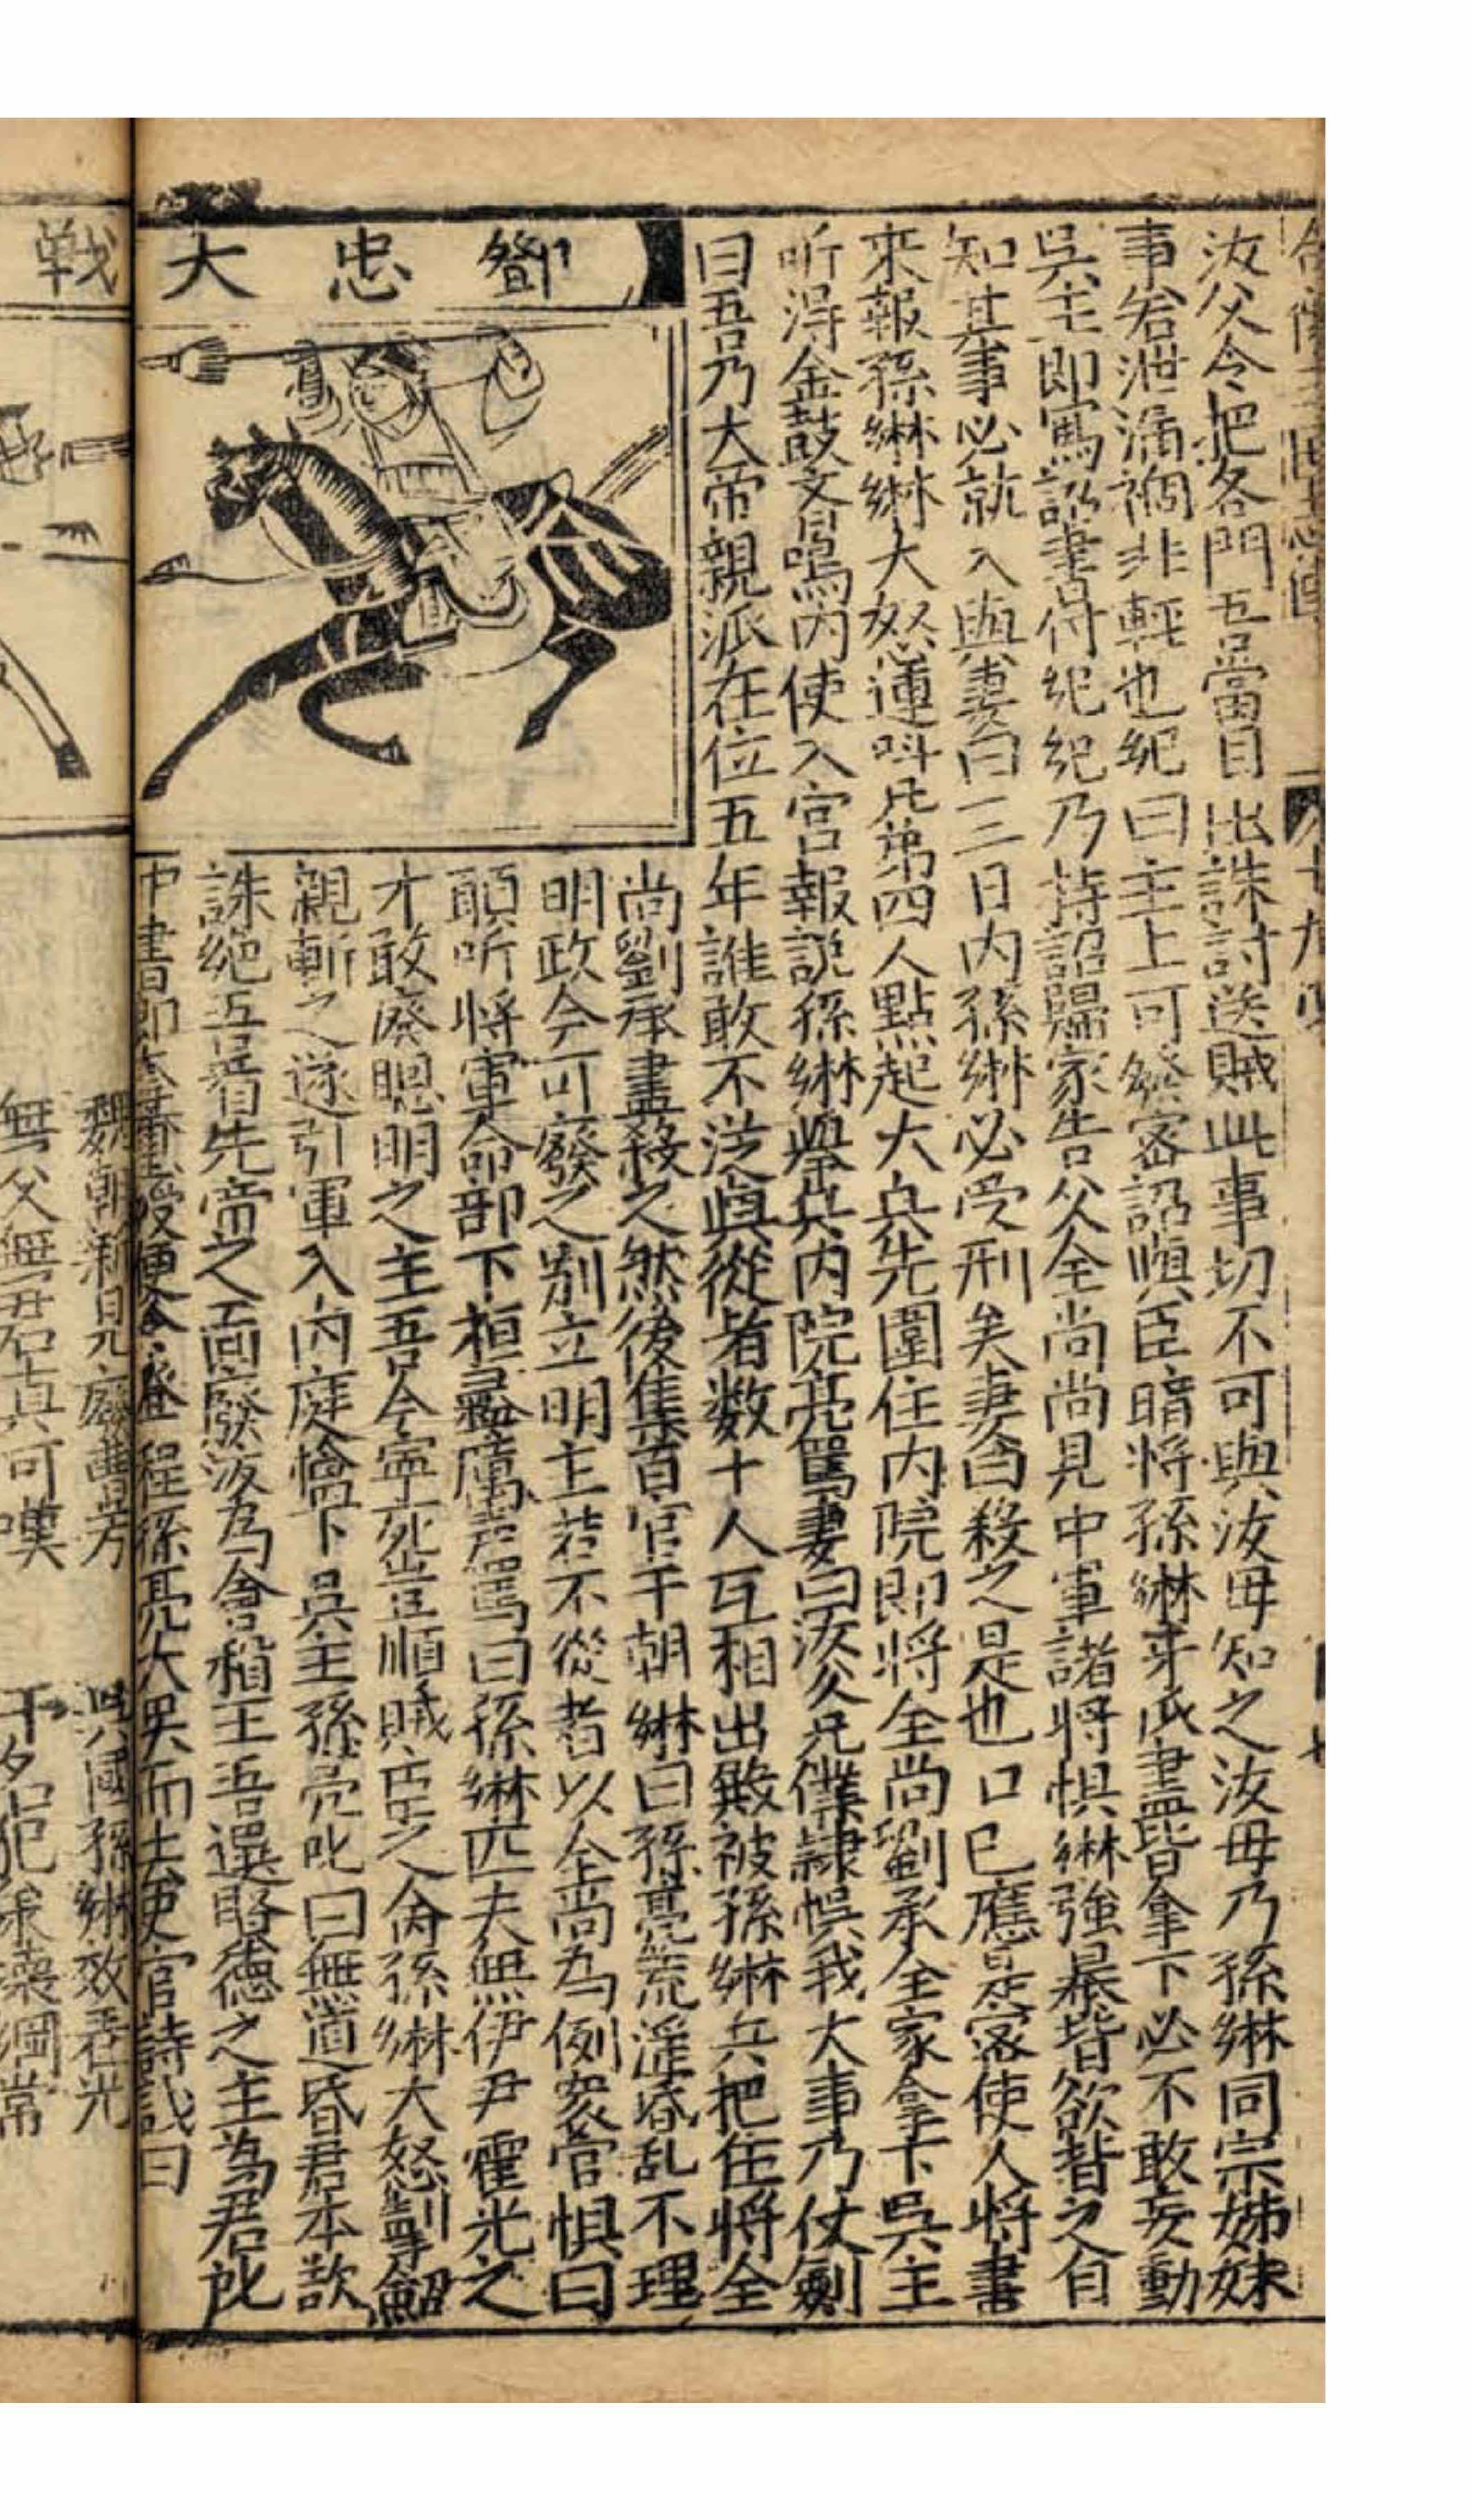 汝父令把各門吾當目出誅討送賊此事切不可與汝毋知之汝毋乃孫綝同宗姊妹
事若泄漏禍非軽也紀曰主上可發密詔與臣暗将孫綝牙爪盡皆拿下必不敢妄動
吳主即寫詔書付紀紀乃持詔歸家告父全尚尚見中軍諸将惧綝強暴皆欲替之自
知其事必就入與妻曰三日内孫綝必受刑矣妻曰殺之是也口巳應是宻使人将書
來報孫綝綝大怒連呌兄弟四人點起大兵先圍住内院即将全尚劉承全家拿下吳主
听淂金鼓交鳴内使入宫報説孫綝舉兵内院亮罵妻曰汝父兄僕隷悮我大事乃仗劍
曰吾乃大帝親派在位五年誰敢不從與從者数十人互相出殿被孫綝兵把住将全
尚劉承盡殺之然後集百官于朝綝曰孫亮荒淫昏乱不理
明政令可廢之别立明主若不從者以全尚為例衆官惧曰
願听将軍命部下桓彝厲声罵曰孫綝匹夫無伊尹霍光之
才敢廢聰明之主吾今寧死豈順賊臣之人為孫綝大怒掣劍
親斬之遂引軍入内庭愴下吳主孫亮叱曰無道昏君本欲
誅絕吾看先帝之面廢汝為會稽王吾選賢德之主為君叱
中書郎李崇奪璽綬便令登程孫亮大哭而去史官詩戝曰
鄧忠大戦
魏朝新見廢曹芳 吳國孫綝效霍光
無父無君真可嘆 干名犯義壊綱常